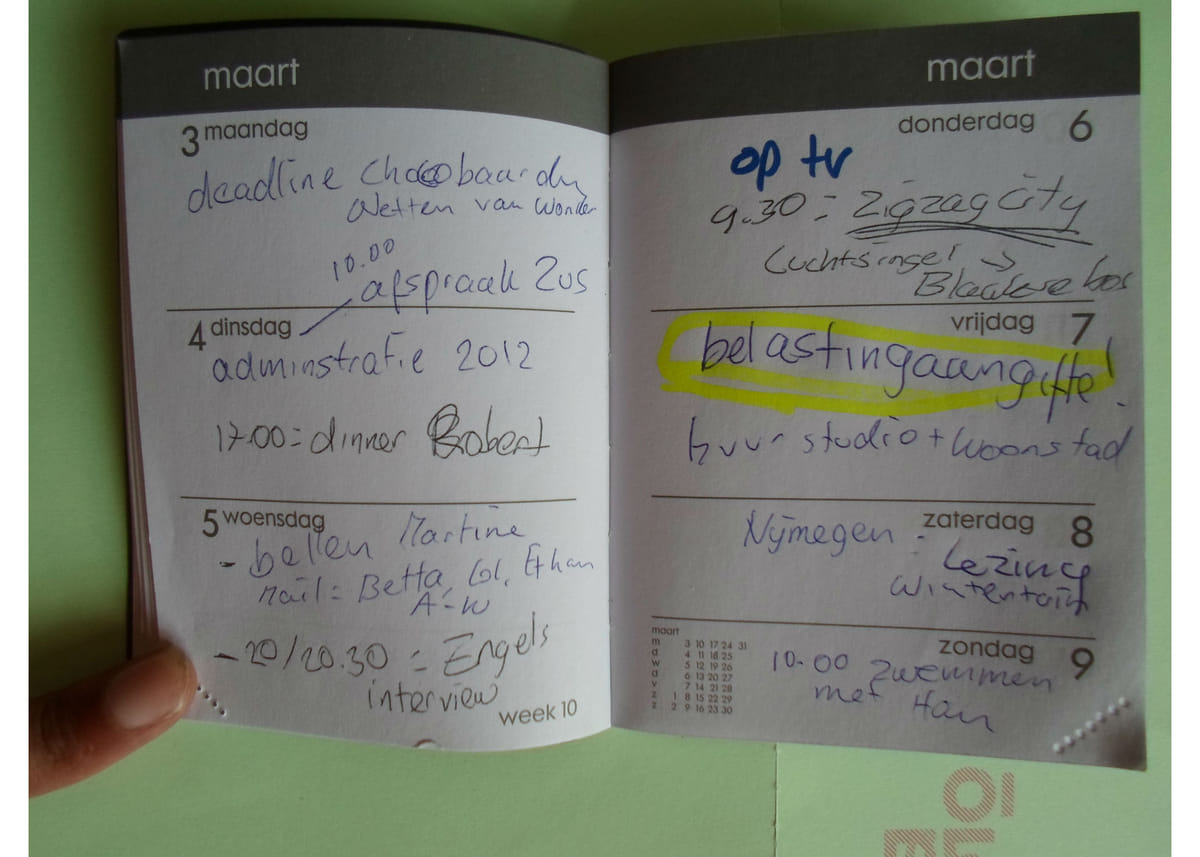 maart
3 maandag
deadline
Wetten van Wonder
10.00
afspraak Zus
4 dinsdag
adminstratie 2012
17.00 = dinner Robert
5 woensdag
- bellen Martine
mail = Betta, Ethan
A-W
- 20/20.30 = Engels
interview
week 10
maart
donderdag 6
op tv
9.30 = Zigzagcity
Luchtsingel →
vrijdag 7
belastingaangifte!
huur studio + Woonstad
zaterdag 8
Nijmegen =
Lezing
Wintertuin
zondag 9
10.00 Zwemmen
met Han
maart
m 3 10 17 24 31
d 4 11 18 25
w 5 12 19 26
d 6 13 20 27
v 7 14 21 28
z 1 8 15 22 29
z 2 9 16 23 30